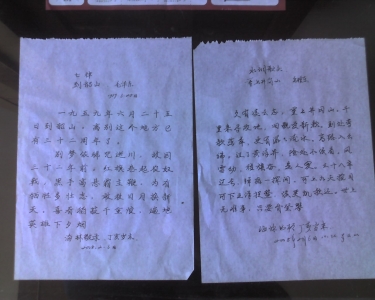 七律
到韶山 毛泽东
一九五九年六月二十五
日到韶山。离别这个地方已
有三十二周年了。
别梦依稀咒逝川，故园
三十二年前。红旗卷起农奴
戟，黑手高悬霸主鞭。为有
牺牲多壮志，敢教日月换新
天。喜看稻菽千重浪，遍地
英雄下夕烟。
水调歌头
重上井冈山 毛泽东
久有凌云志，重上井冈山。千
里来寻故地，旧貌变新颜。到处莺
歌燕舞，更有潺潺流水，高路入云
端。过了黄洋界，险处不须看。风
雷动，旌旗奋，是人寰。三十八年
过去，弹指一挥间。可上九天揽月，
可下五洋捉鳖，谈笑凯歌还。世上
无难事，只要肯登攀。